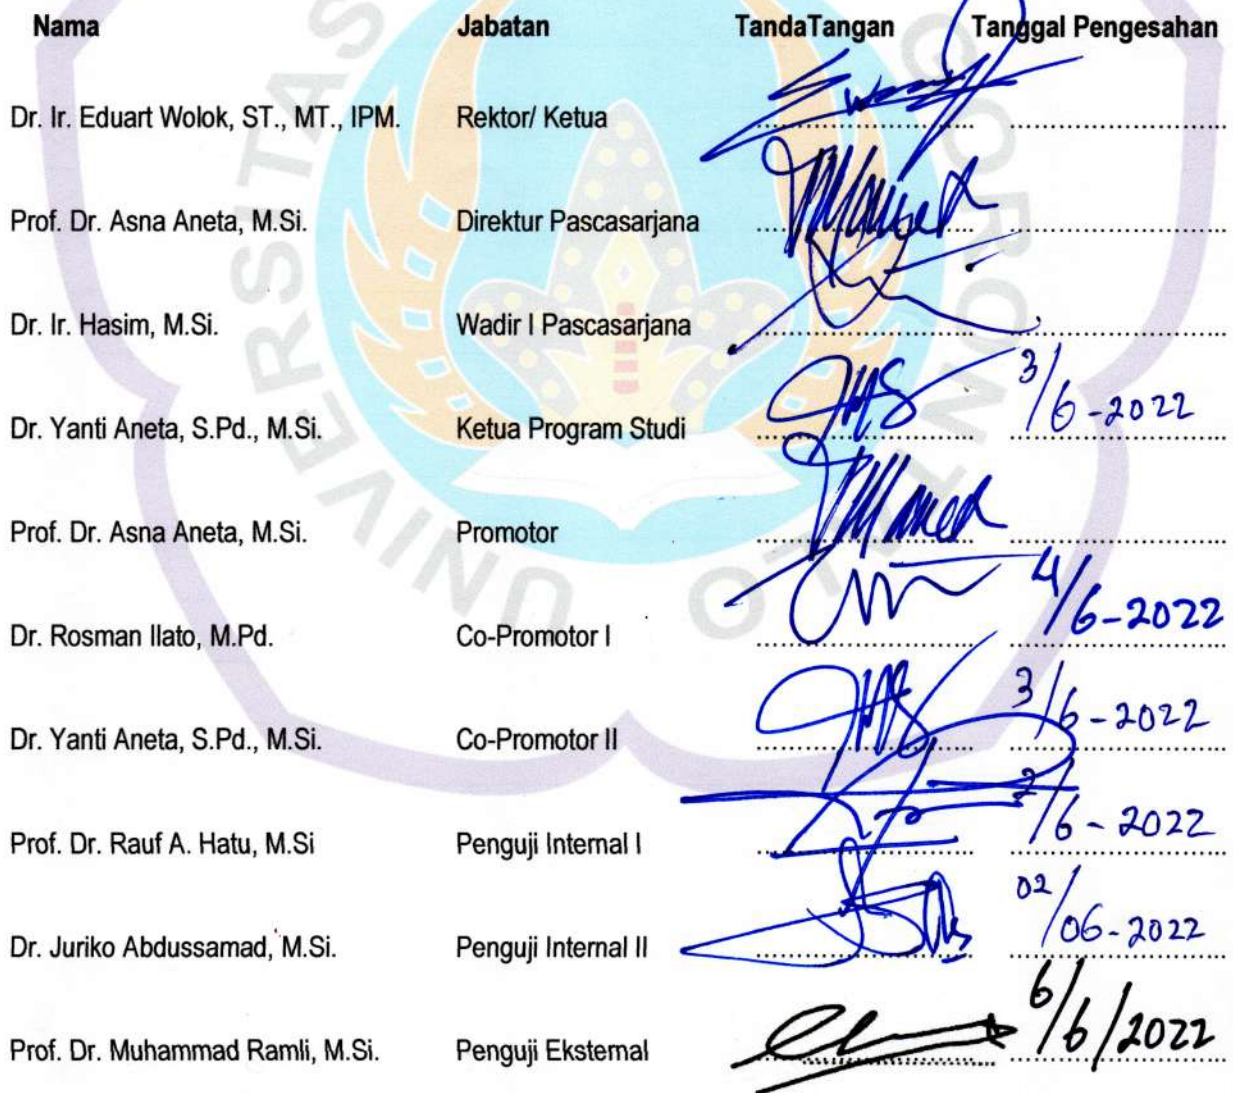 Nama Jabatan TandaTangan Tanggal Pengesahan
Dr. Ir. Eduart Wolok, ST., MT., IPM. Rektor/ Ketua
Prof. Dr. Asna Aneta, M.Si. Direktur Pascasarjana
Dr. Ir. Hasim, M.Si. Wadir I Pascasarjana
Dr. Yanti Aneta, S.Pd., M.Si. Ketua Program Studi 3/6-2022
Prof. Dr. Asna Aneta, M.Si. Promotor
Dr. Rosman Ilato, M.Pd. Co-Promotor I 4/6-2022
Dr. Yanti Aneta, S.Pd., M.Si. Co-Promotor II 3/6-2022
Prof. Dr. Rauf A. Hatu, M.Si Penguji Internal I 2/6-2022
Dr. Juriko Abdussamad, M.Si. Penguji Internal II 02/06-2022
Prof. Dr. Muhammad Ramli, M.Si. Penguji Eksternal 6/6/2022
UNIVERSITAS
GORONTALO